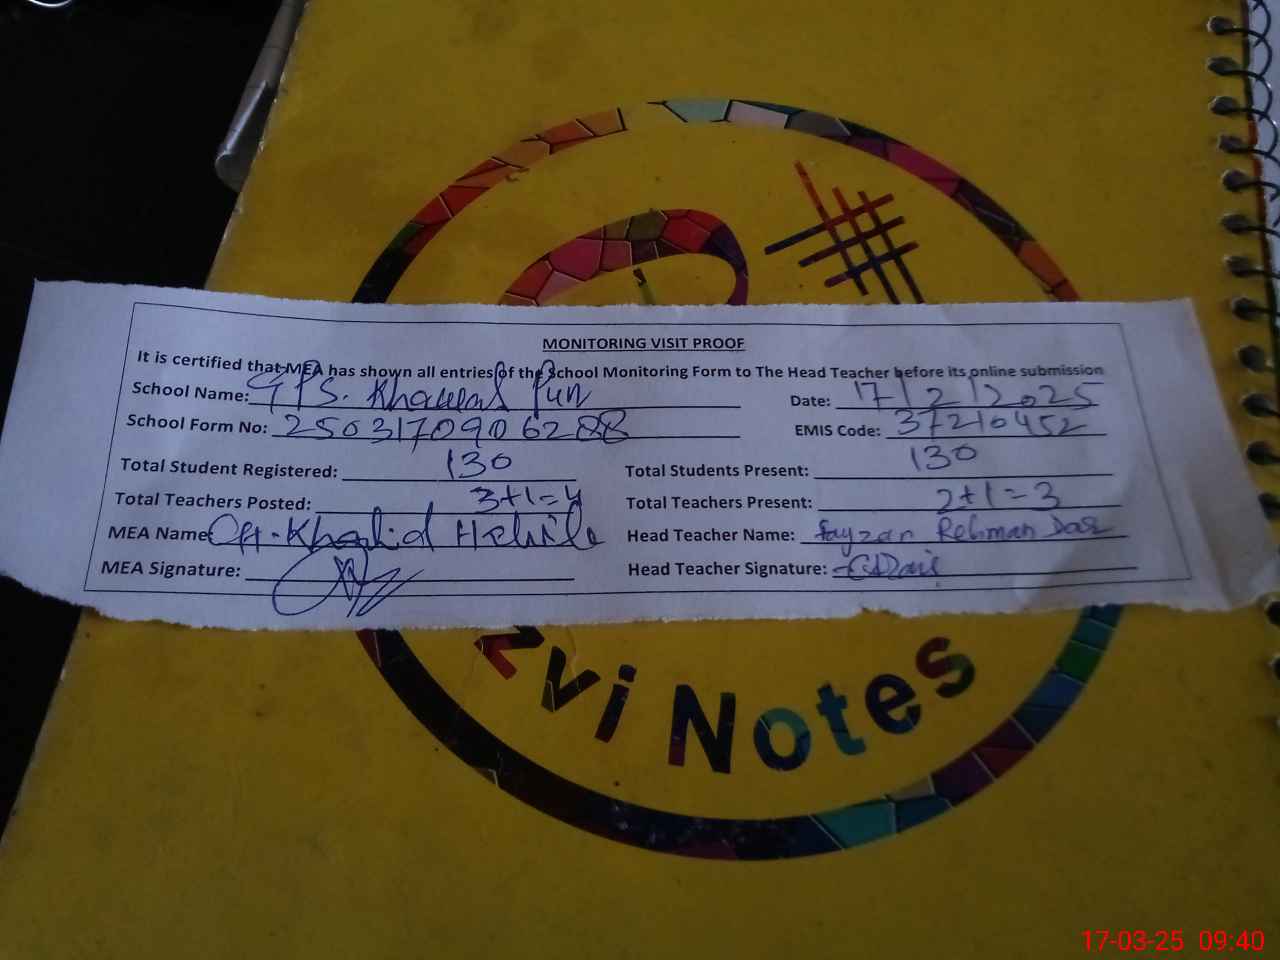 MONITORING VISIT PROOF
It is certified that MEA has shown all entries of the School Monitoring Form to The Head Teacher before its online submission
School Name: GPS. Khawas Pur Date: 17/2/2025
School Form No: 2503170906288 EMIS Code: 37210452
Total Student Registered: 130 Total Students Present: 130
Total Teachers Posted: 3+1=4 Total Teachers Present: 2+1=3
MEA Name Khalid Head Teacher Name: Fayzan Rehman Dar
MEA Signature: Head Teacher Signature:
zvi Notes
17-03-25 09:40